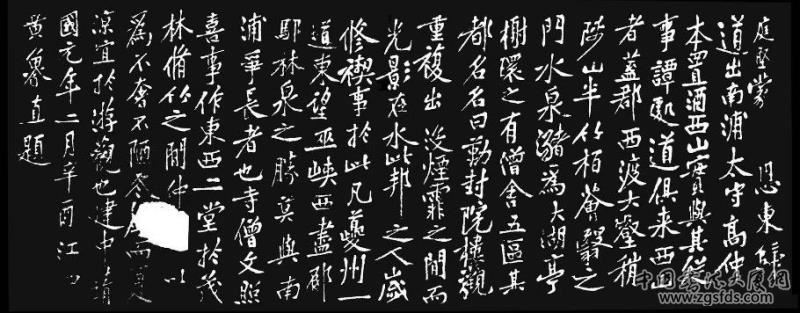 庭堅蒙 恩東歸
道出南浦太守高仲
本置酒西山實與其從
事譚處道俱來西山
者蓋郡西渡大壑稍
陟山半竹柏薈翳之
門水泉瀦為大湖亭
榭環之有僧舍五區其
都名名曰勳封院樓觀
重複出沒煙霏之間而
光影在水此邦之人歲
修禊事於此凡夔州一
道東望巫峽西盡郡
鄢林泉之勝莫與南
浦爭長者也寺僧文照
喜事作東西二堂於茂
林脩竹之間仲 以
為不奢不陋 而夏
涼宜於游觀也建中靖
國元年二月辛酉江
黃魯直題
中国书法大展网
www.zgsfds.com